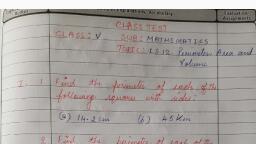 CLASS TEST
CLASS: V SUB: MATHEMATICS
TOPIC: L.S 12 Perimeter, Area and
Volume
I. 1. Find the perimeter of each of the
following squares with sides:
(a) 14.2 cm (b) 45 km
2. Find the perimeter of each of the